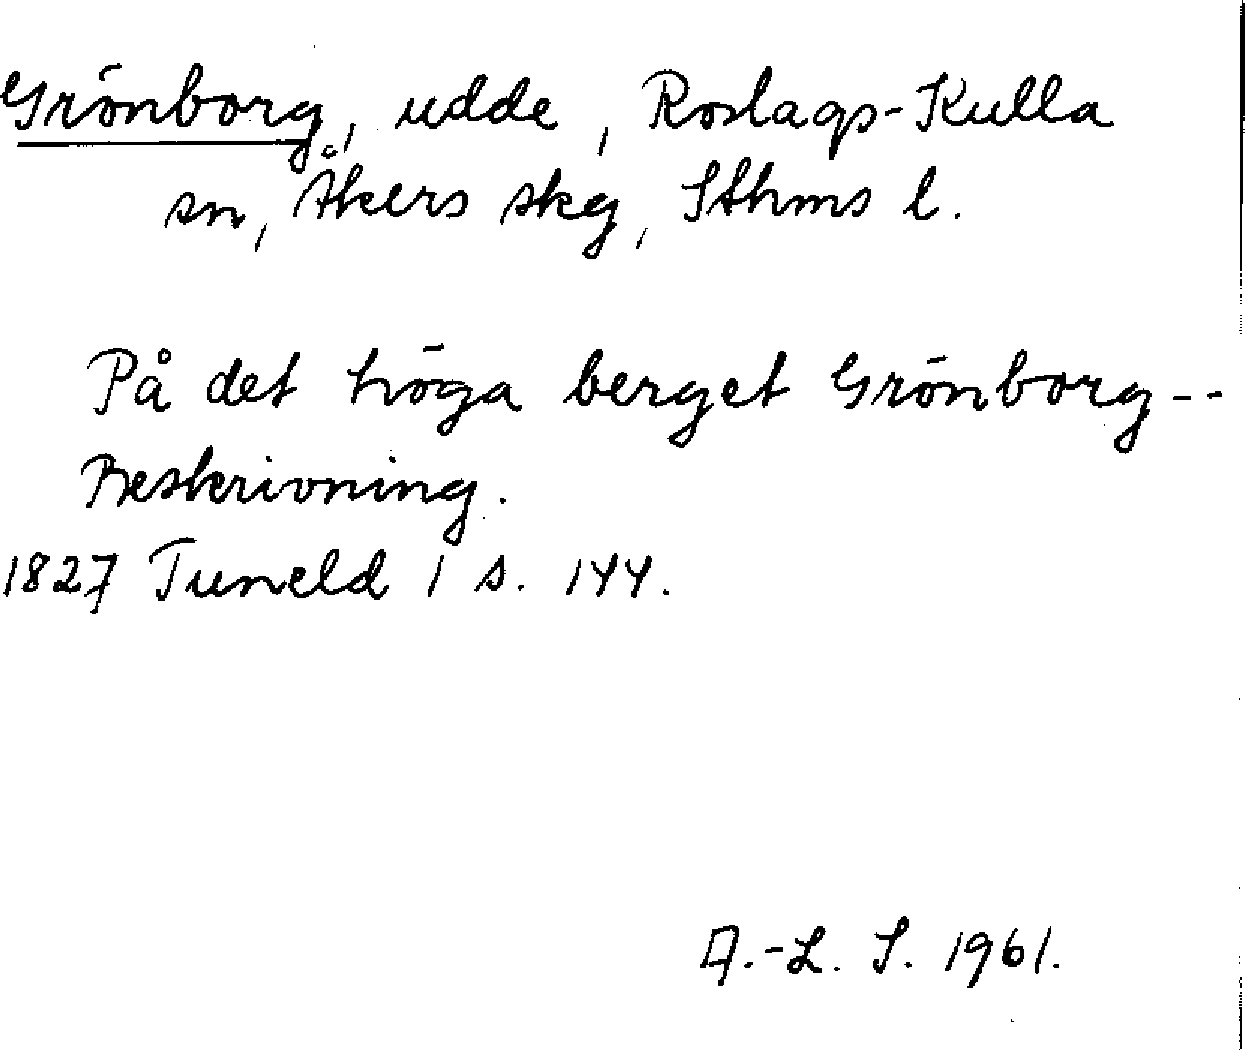 Grönborg, udde, Roslags-Kulla
sn, Åkers skg, Sthms l.
På det höga berget Grönborg--
Beskrivning.
1827 Tuneld 1 s. 144.
A.-L. S. 1961.